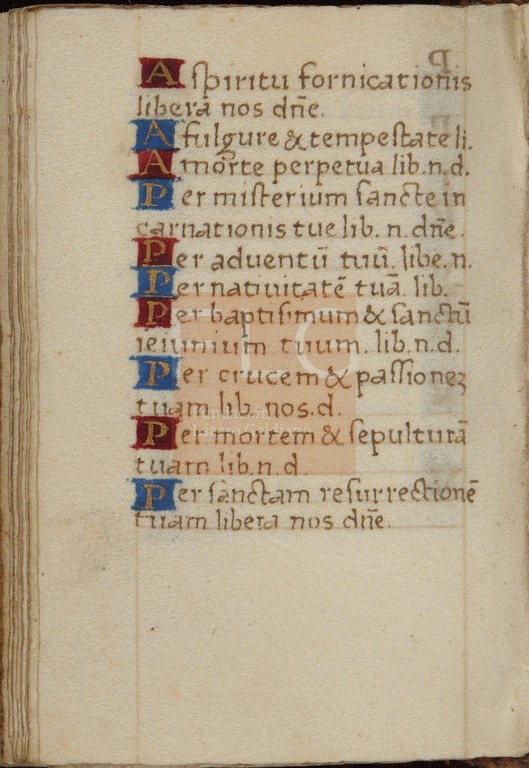 A spiritu fornicationis
libera nos dn̄e.
A fulgure & tempestate li.
A morte perpetua lib. n. d.
Per misterium sancte in
carnationis tue lib. n. dn̄e.
Per adventū tuū. libe. n.
Per nativitatē tuā. lib.
Per baptismum & sanctū
ieiunium tuum. lib. n. d.
Per crucem & passionez
tuam lib. nos. d.
Per mortem & sepulturā
tuam lib. n. d.
Per sanctam resurrectionē
tuam libera nos dn̄e.